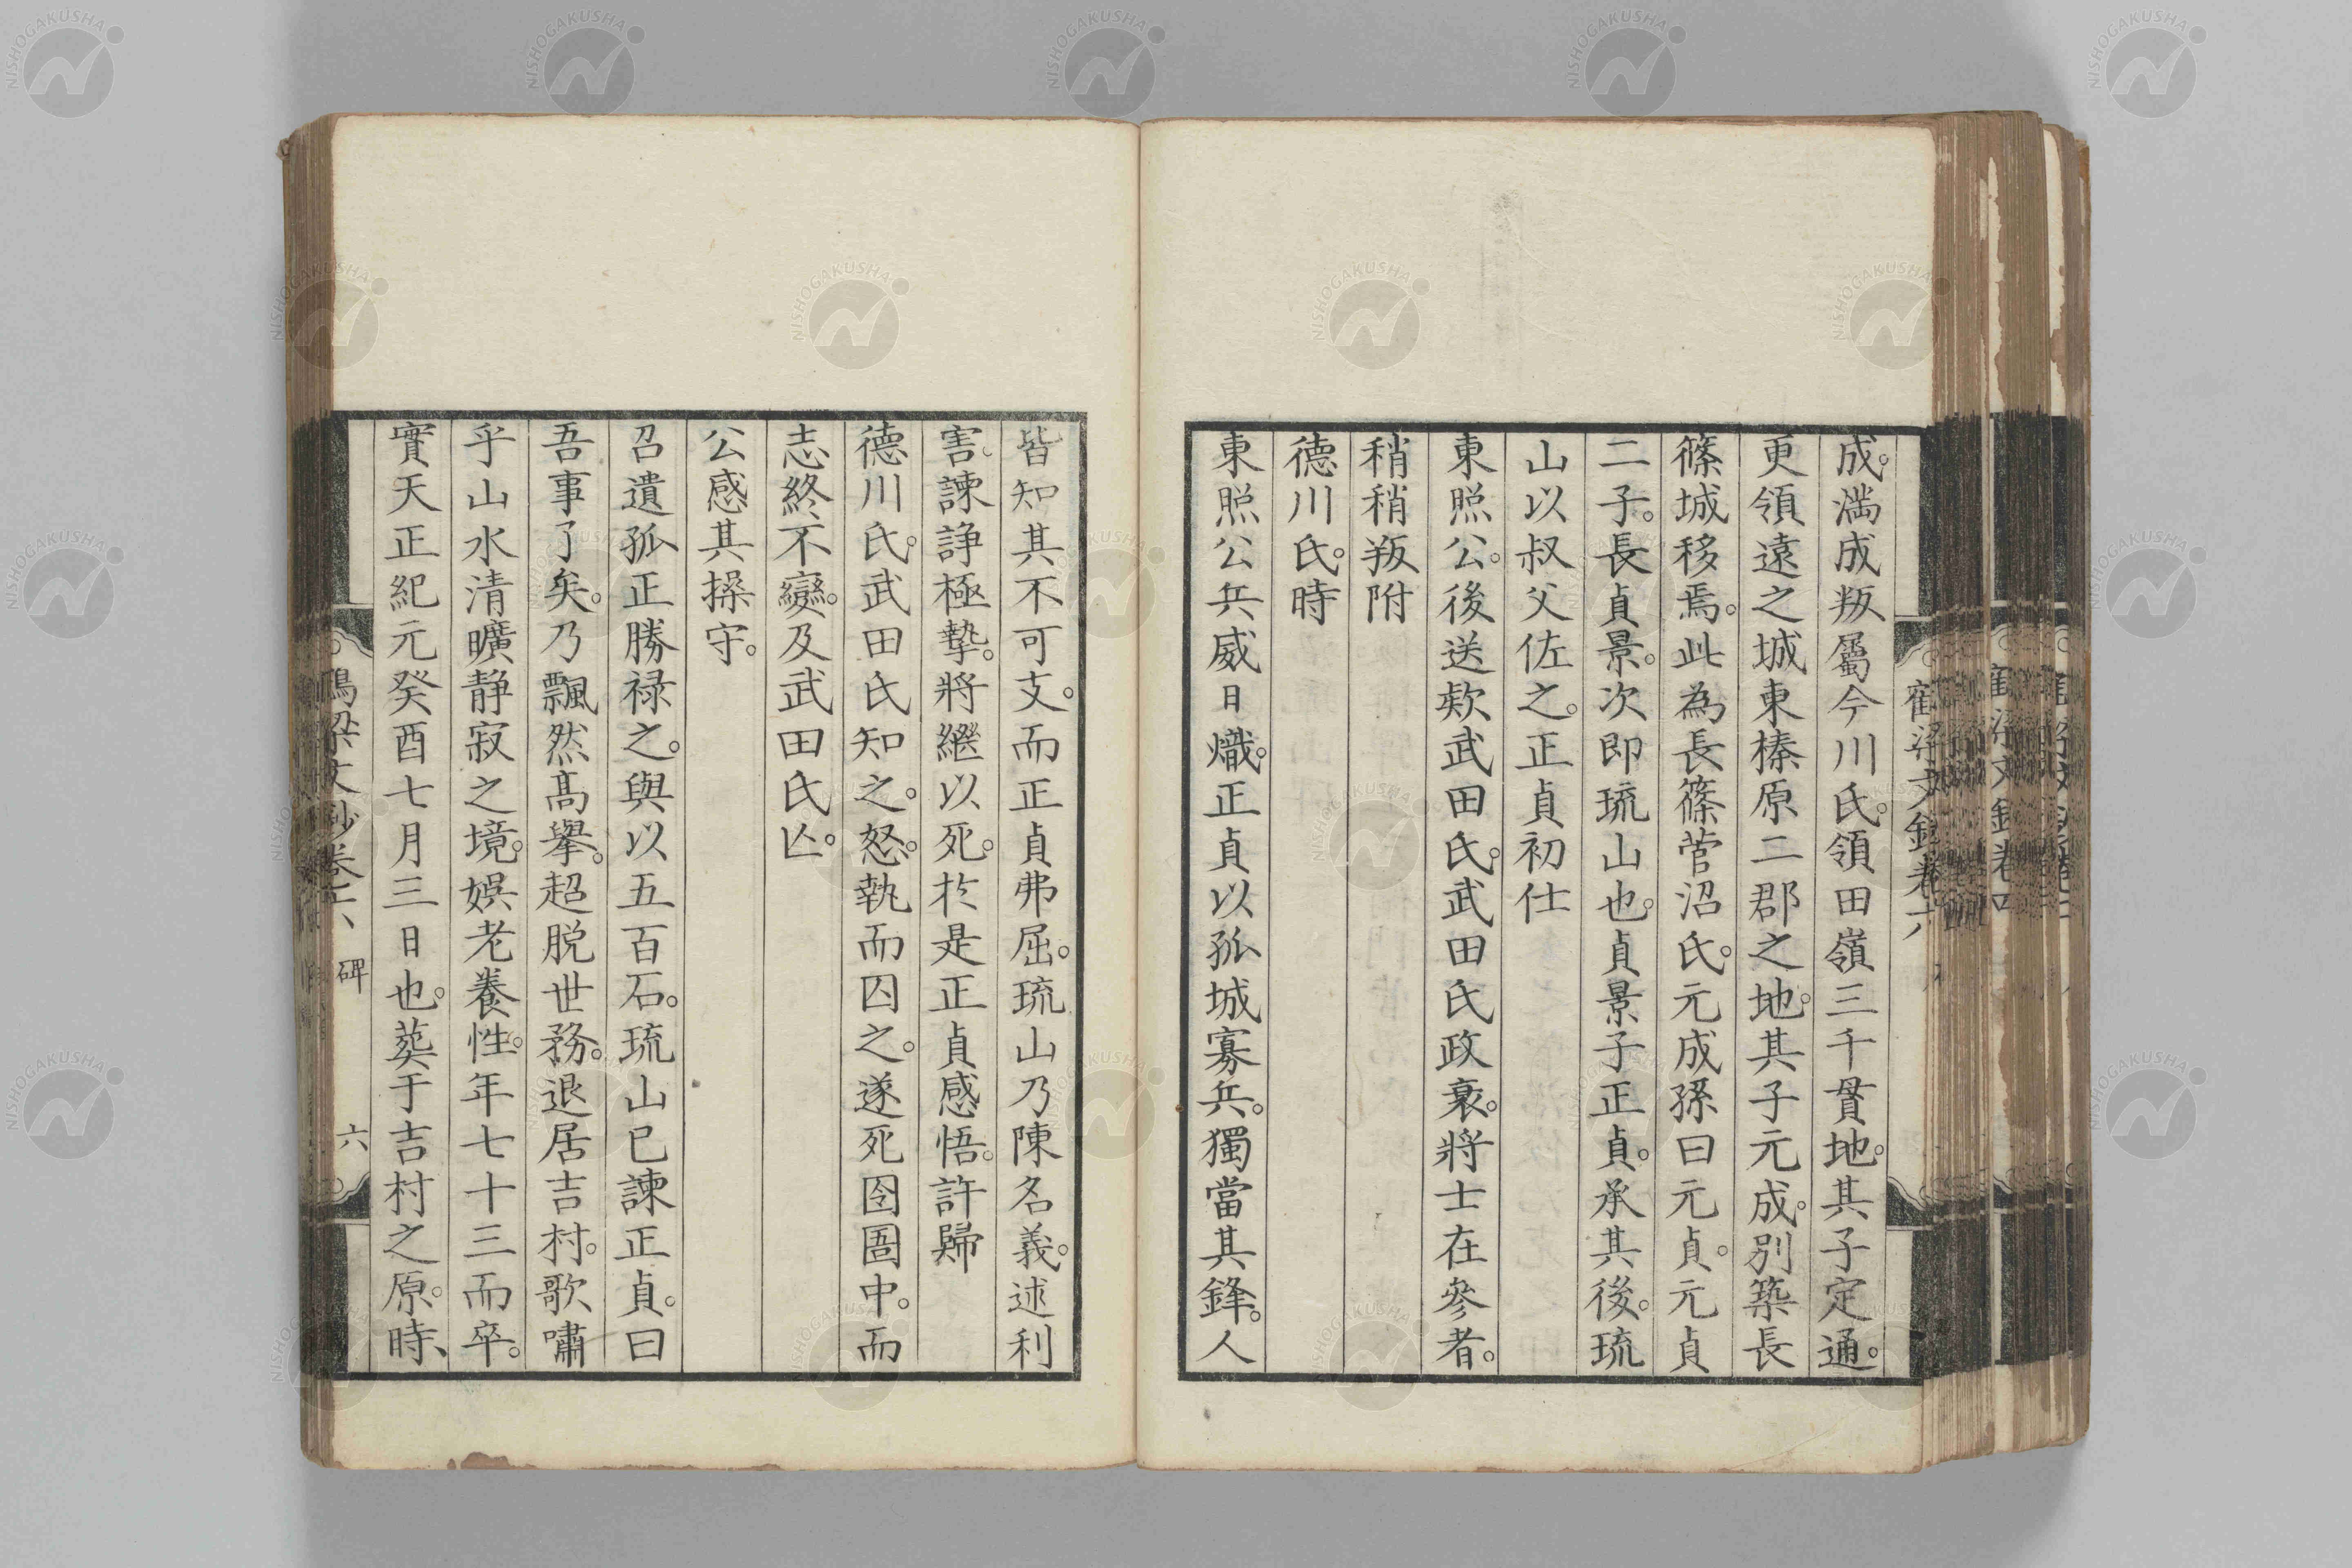 成。満成叛屬今川氏。領田嶺三千貫地。其子定通。
更領遠之城東榛原二郡之地。其子元成。別築長
篠城移焉。此為長篠菅沼氏。元成孫曰元貞。元貞
二子。長貞景。次即琉山也。貞景子正貞。承其後。琉
山以叔父佐之。正貞初仕
東照公。後送欵武田氏。武田氏政衰。將士在參者。
稍稍叛附
德川氏。時
東照公兵威日熾。正貞以孤城寡兵。獨當其鋒。人
皆知其不可支。而正貞弗屈。琉山乃陳名義。述利
害。諫諍極摯。將繼以死。於是正貞感悟。許歸
德川氏。武田氏知之。怒。執而囚之。遂死囹圄中。而
志終不變。及武田氏亾。
公感其操守。
召遺孤正勝禄之。與以五百石。琉山已諫正貞。曰
吾事了矣。乃飄然高擧。超脱世務。退居吉村。歌嘯
乎山水清曠静寂之境。娯老養性。年七十三而卒。
實天正紀元癸酉七月三日也。葬于吉村之原。時、
碑
六
NISHOGAKUSHA